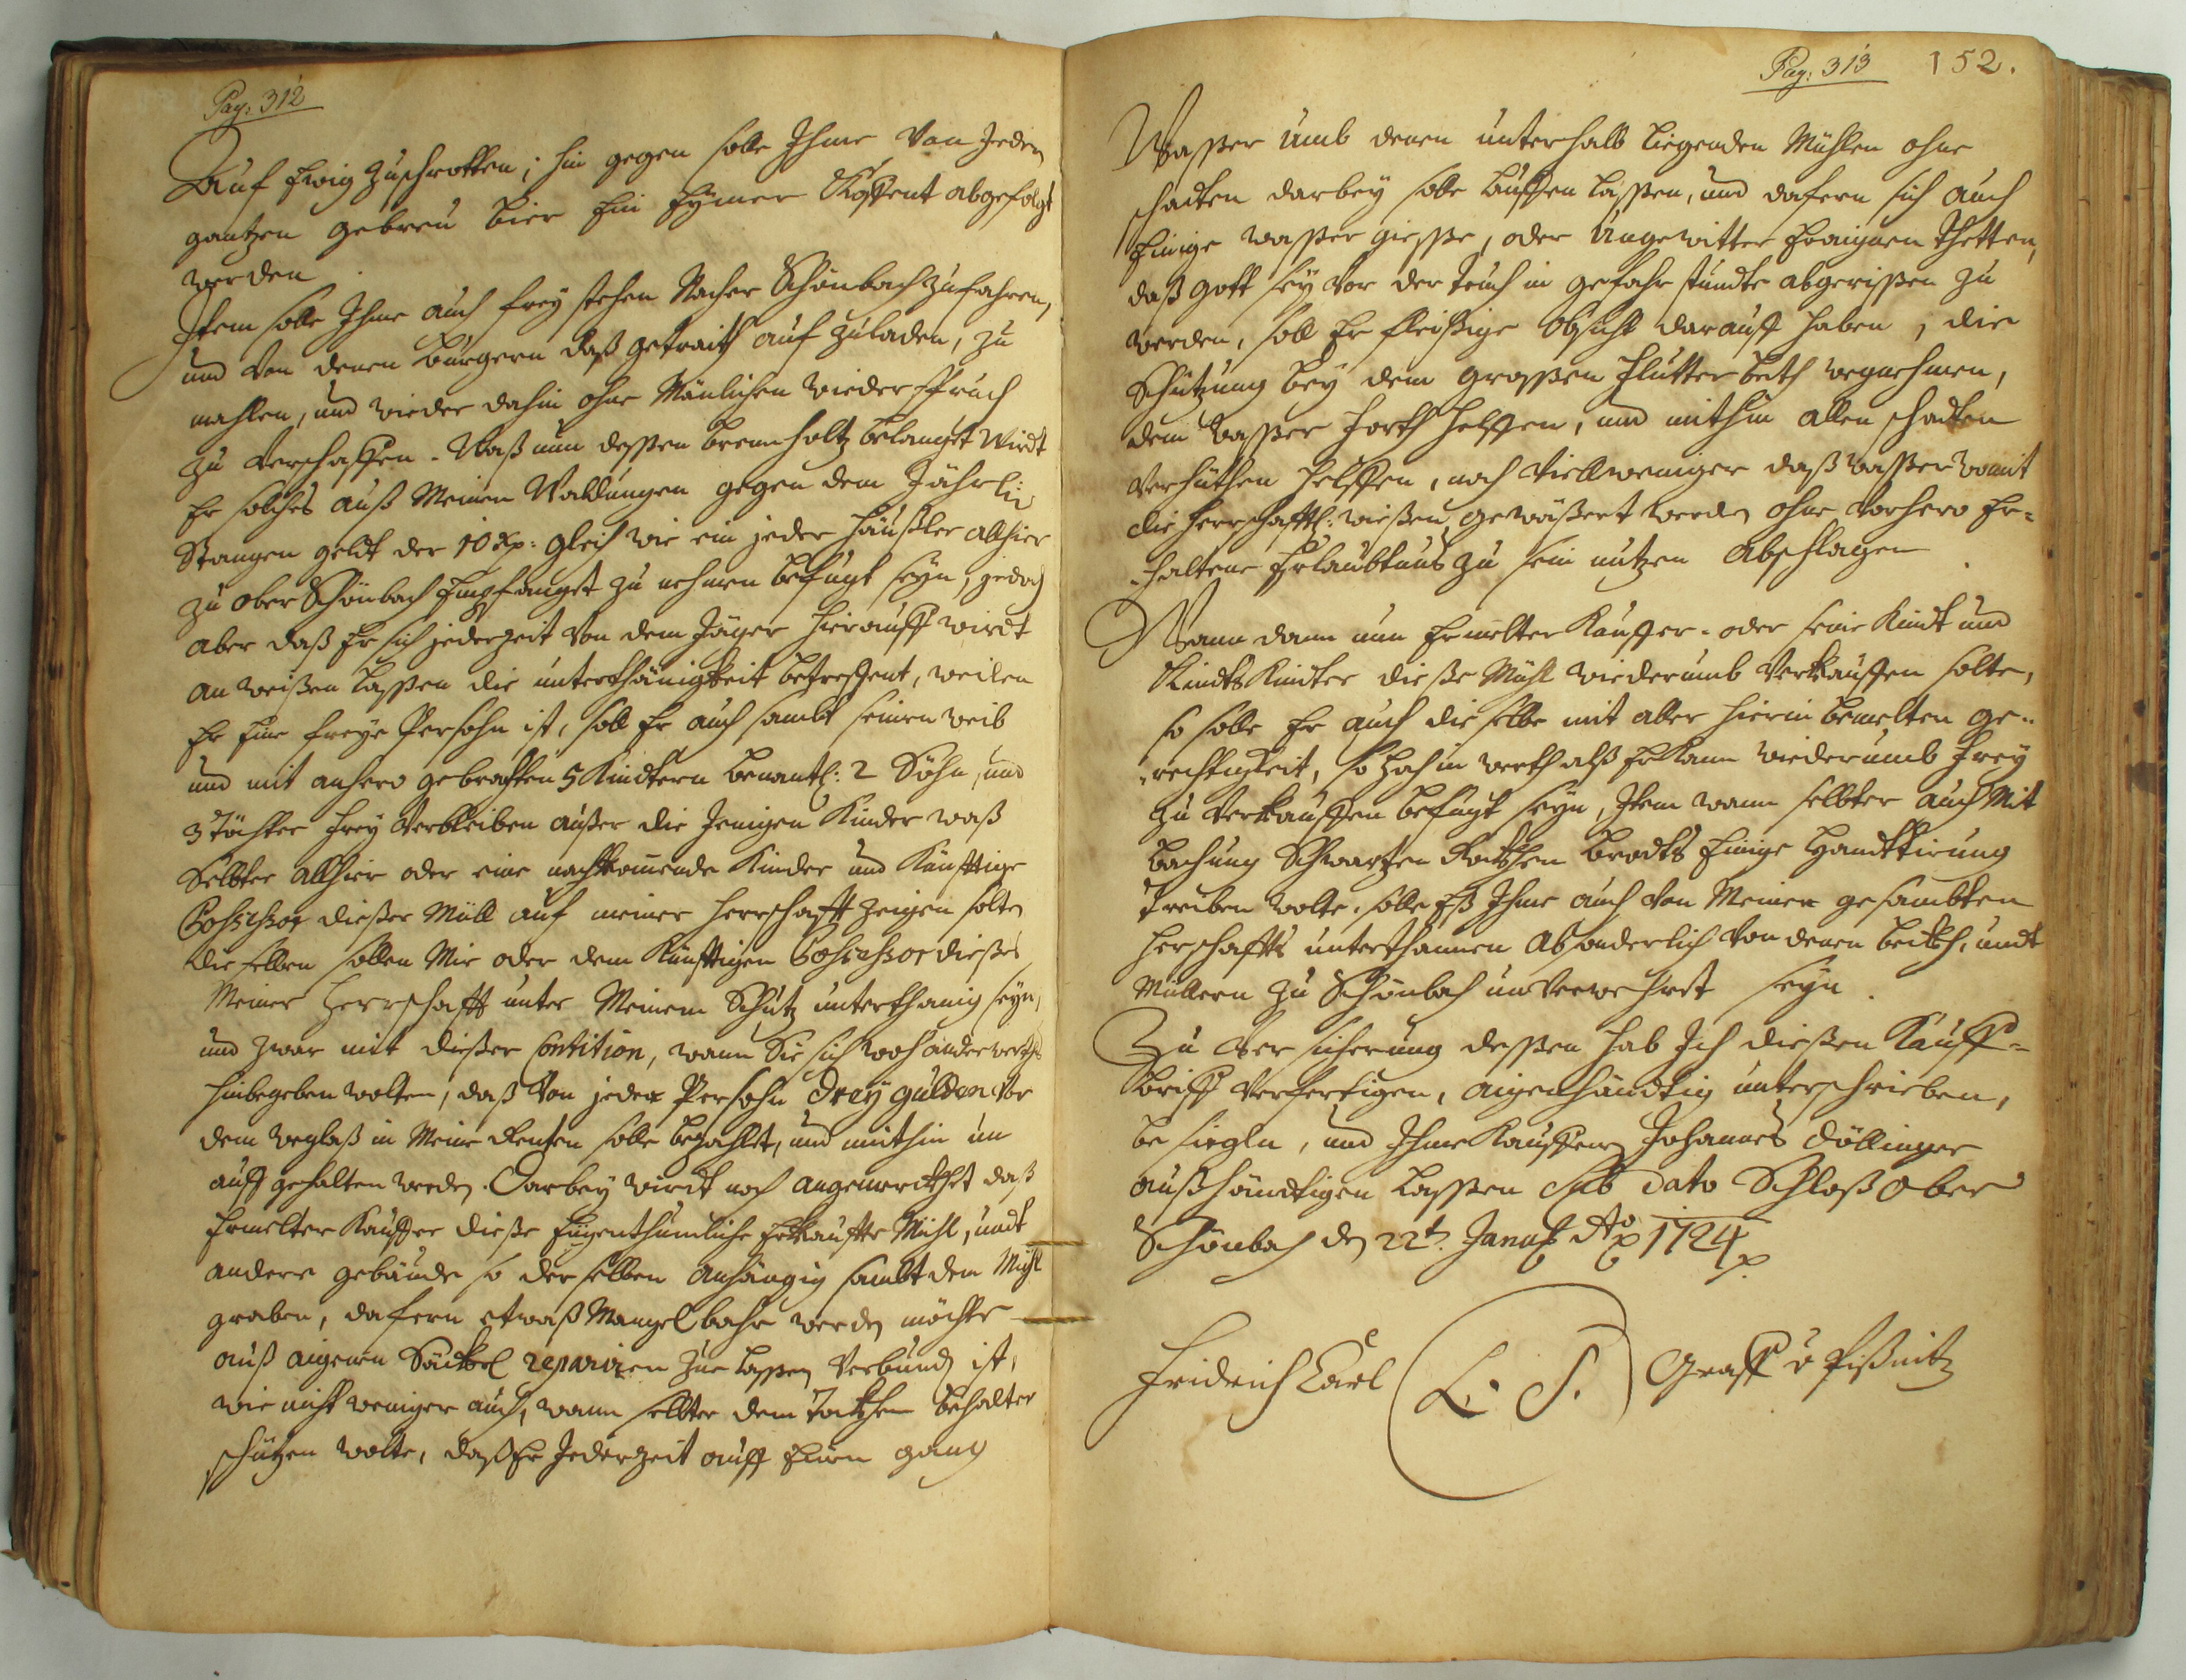 Pag: 312
Auf Ewig zuschrotten; hin gegen solle Ihme von Jeden
gantzen gebreu bier Ein Eÿmer Köffent abgefolgt
werden
Item solle Ihme auch freÿ stehen Nacher Schönbach zufahren,
und von denen burgern daß getraith auf zuladen, zu
mahlen, und wieder dahin ohne Mäniliches wiederspruch
zu verschaffen. Waß nun dessen brennholtz belanget wirdt
Er solches auß Meinen Waldungen gegen dem Jährli
Stangen geldt der 10 Xr: gleich wie ein jeder häußler allhier
zu ober Schönbach Empfanget zu nehmen befugt seÿn, jedoch
aber daß Er sich jederzeit von dem Jäger hierauff wirdt
anweißen lassen die unterthänigkeit betreffent, weilen
Er Eine freÿe Persohn ist, soll Er auch sambt seinen weib
und mit anhero gebrachten 5 Kindtern benantl: 2 Söhn, und
3 Töchter freÿ verbleiben außer die Jenigen Kinder waß
Selbter allhier oder eine nachkommende Kinder und Künfftige
Possessor dießer Müll auf meiner herrschafft zeigen solten
dieselben sollen Mir oder dem Künfftigen Possessor dießer
Meiner herrschafft unter Meinem Schutz unterthanig seÿn,
und zwar mit dießer Contition, wann Sie sich woh anderwerths
hinbegeben wolten, daß von jeder Persohn dreÿ gulden vor
dem weglaß in Meine Renten solle bezahlet, und mithin un
auff gehalten werden. Darbeÿ wirdt noch angemerckhet daß
Ermelter Kauffer dieße Eÿgenthumliche Erkauffte Mühl, undt
andere gebäude so derselben anhängig sambt dem Mühl
graben, dafern etwaß Mangelbahr werden möchte
auß aigenen Säckel repariren zue lassen verbunden ist,
wie nicht weniger auch, wann selbter dem behalter
schützen wolte, daß Er Jederzeit auff Einen gang
Pag: 313 152.
Wasser umb denen unterhalb liegenden Mühlen ohne
schadten darbeÿ solle lauffen lassen, und dafern sich auch
Einige wasser giesse, oder Ungewitter Eraignen thetten,
daß gott seÿ vor der teuch in gefahr stundte abgerissen zu
werden, soll Er fleissige Obsicht darauff haben, die
Schützung beÿ dem grossen Flutter beth wegnehmen,
dem wasser forth helffen, und mithin allen schadten
verhüthen helffen, noch viellweniger daß wasser womit
die herrschafftl: wießen gewässert werden ohne vorhero Er=
=haltene Erlaubtnus zu sein nutzen Abschlagen
Wann dann nun Ermelter Kauffer- oder seine Kindt und
Kindts Kindter dieße Mühl wiederumb verkauffen solte,
so solle Er auch dieselbe mit aller hierin bemelten ge=
=rechtigkeit, so hoch in werth alß Er kann wiederumb freÿ
zu verkauffen befugt seÿn, Item wann selbter auch Mit
bachung Schwartzen brodts Einige Handtierung
treiben wolte, solle Eß Ihme auch von Meiner gesambten
herschaffts unterthannen absonderlich von denen beckh, undt
Müllern zu Schönbach unverwehret seÿn.
Zu versicherung dessen hab Ich dießen Kauff=
brieff verfertigen, aigenhändtig unterschrieben,
besiegln, und Ihme Kauffern Johannes Döllinger
außhändtigen lassen Sub dato Schloß Ober
Schönbach den 22t. Januarÿ Ao 1724
Fridrich Carl (L. S.) Graff v Pißnitz